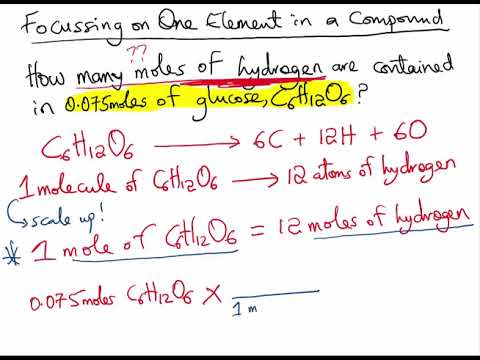 Focussing on One Element in a Compound
??
How many moles of hydrogen are contained
in 0.075moles of glucose, C6H12O6?
C6H12O6 → 6C + 12H + 6O
1 molecule of C6H12O6 → 12 atoms of hydrogen
↳ scale up!
* 1 mole of C6H12O6 = 12 moles of hydrogen
0.075moles C6H12O6 ×
1 m